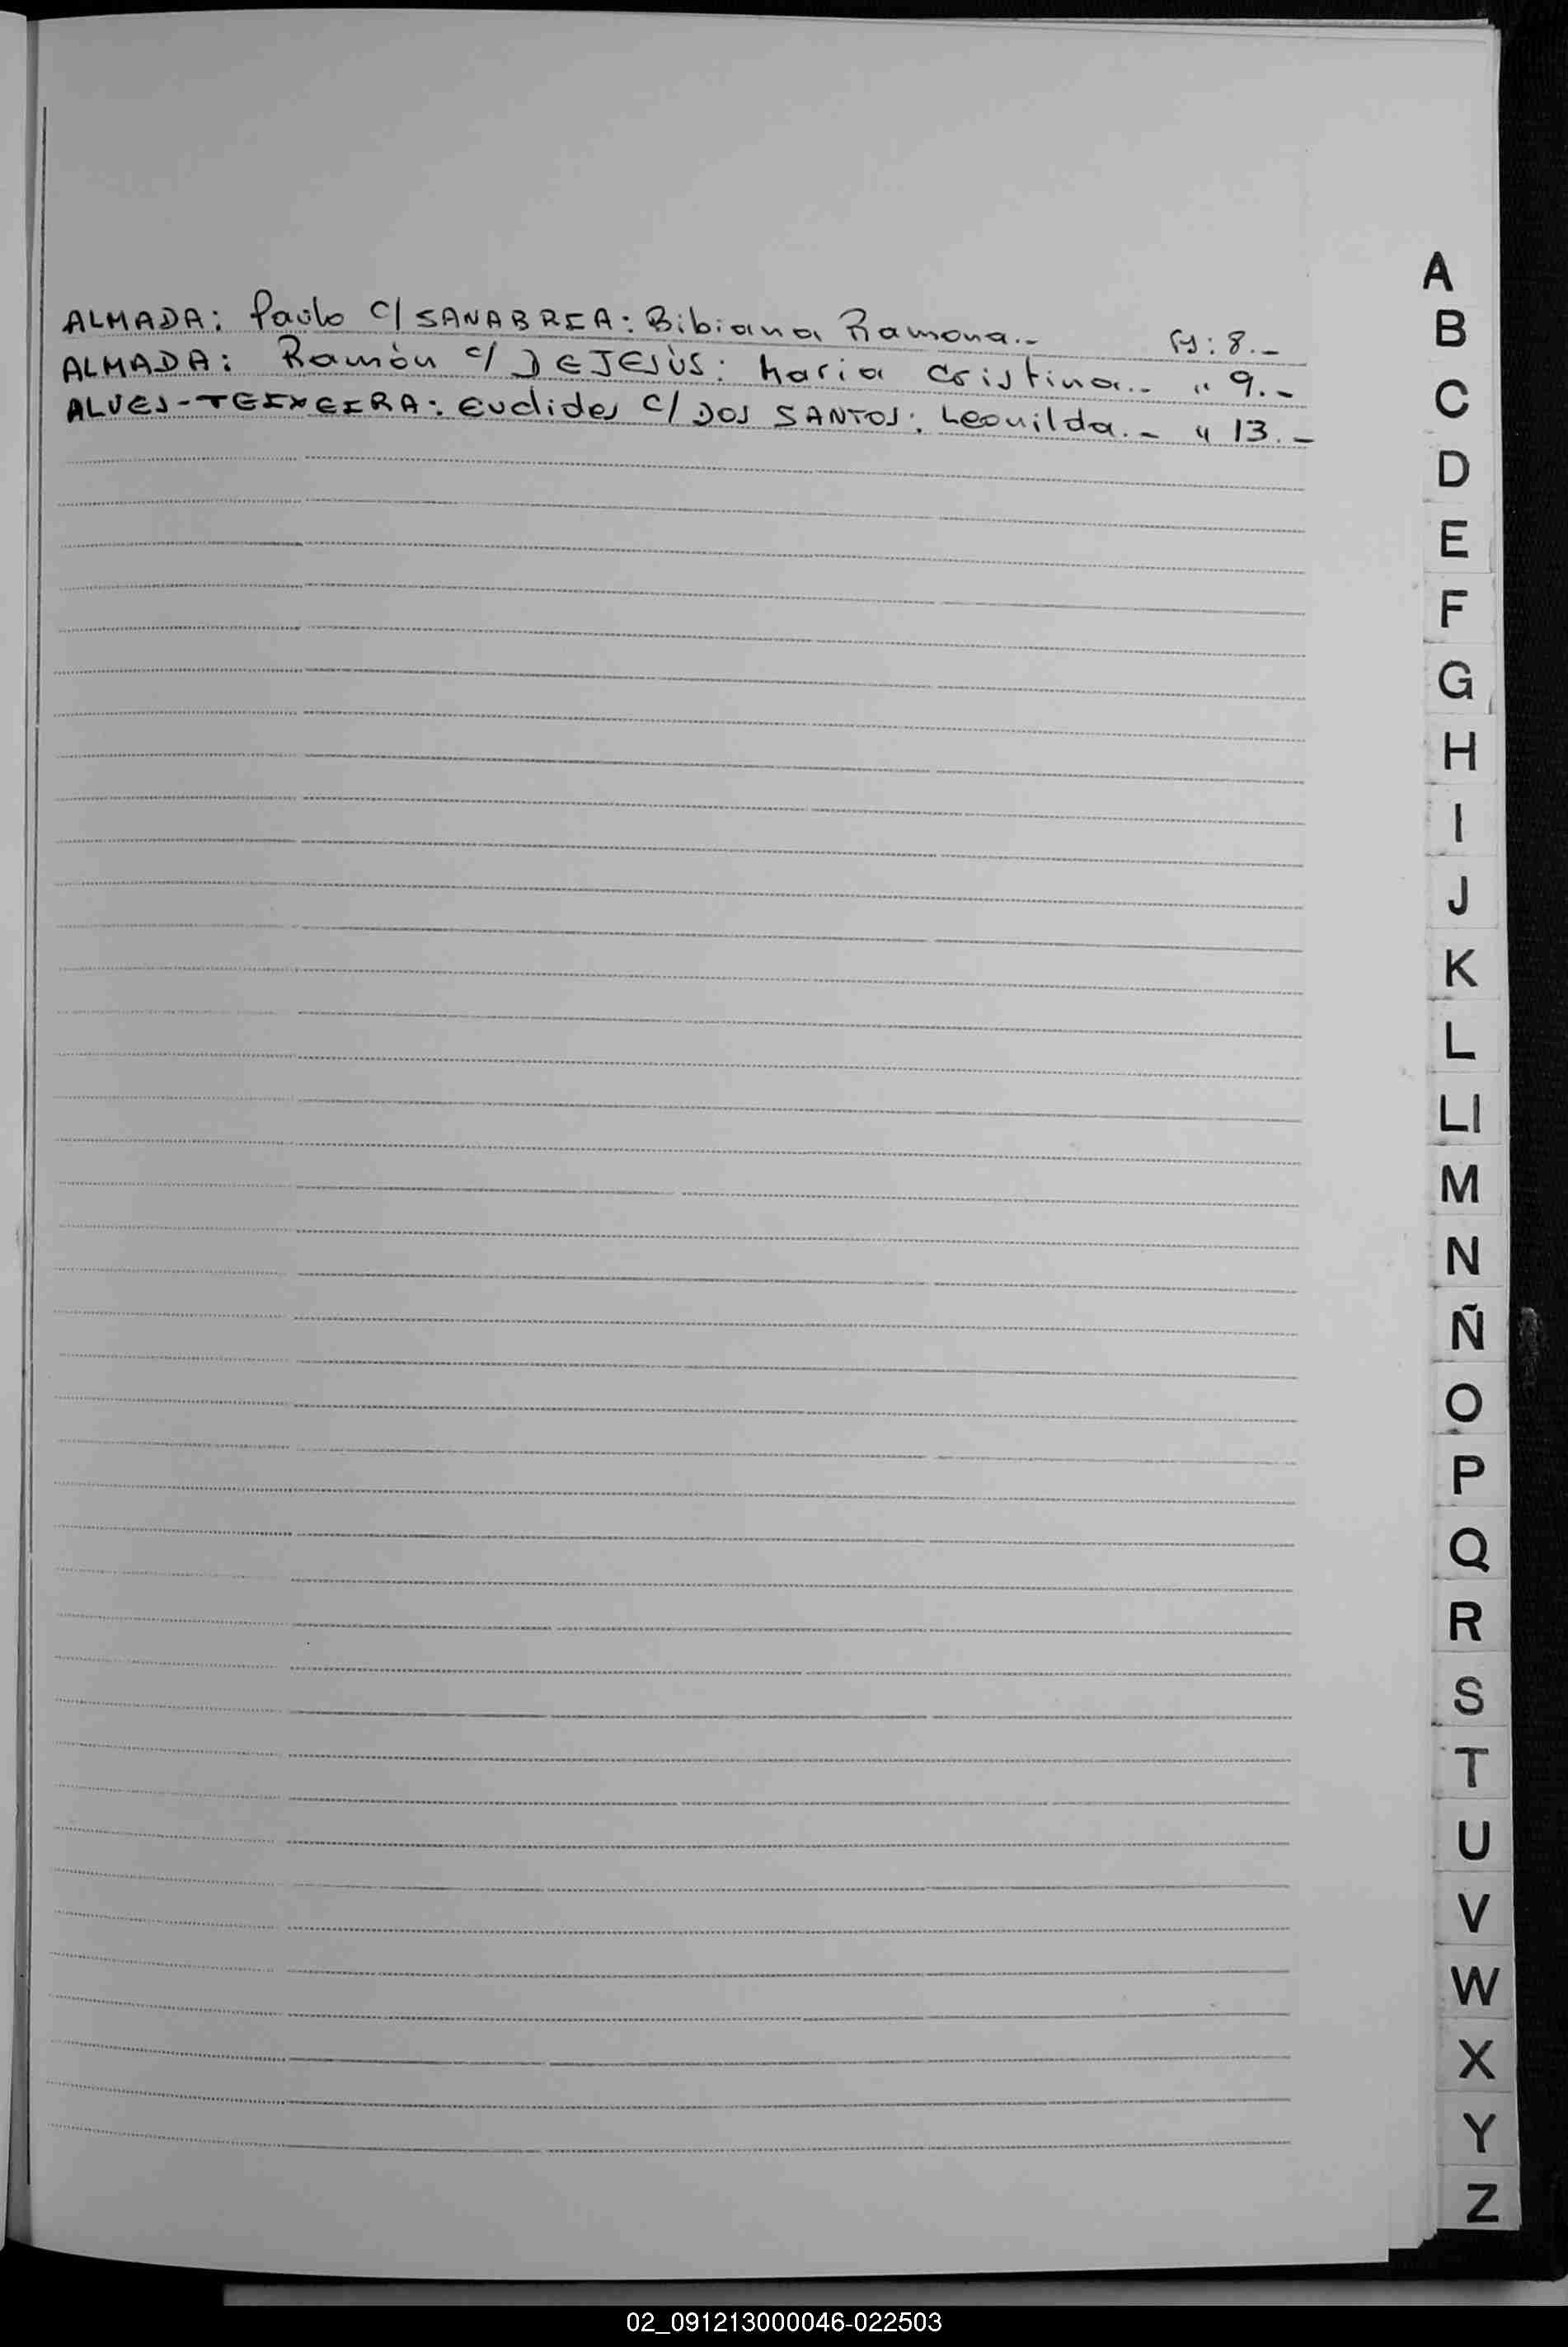 ALMADA: Paulo c/ SANABREA: Bibiana Ramona.- Fj: 8.-
ALMADA: Ramòn c/ DEJESÙS: Maria Cristina.- " 9.-
ALVES-TEIXEIRA: Euclides c/ DOS SANTOS: Leonilda.- " 13.-
A
B
C
D
E
F
G
H
I
J
K
L
Ll
M
N
Ñ
O
P
Q
R
S
T
U
V
W
X
Y
Z
02_091213000046-022503